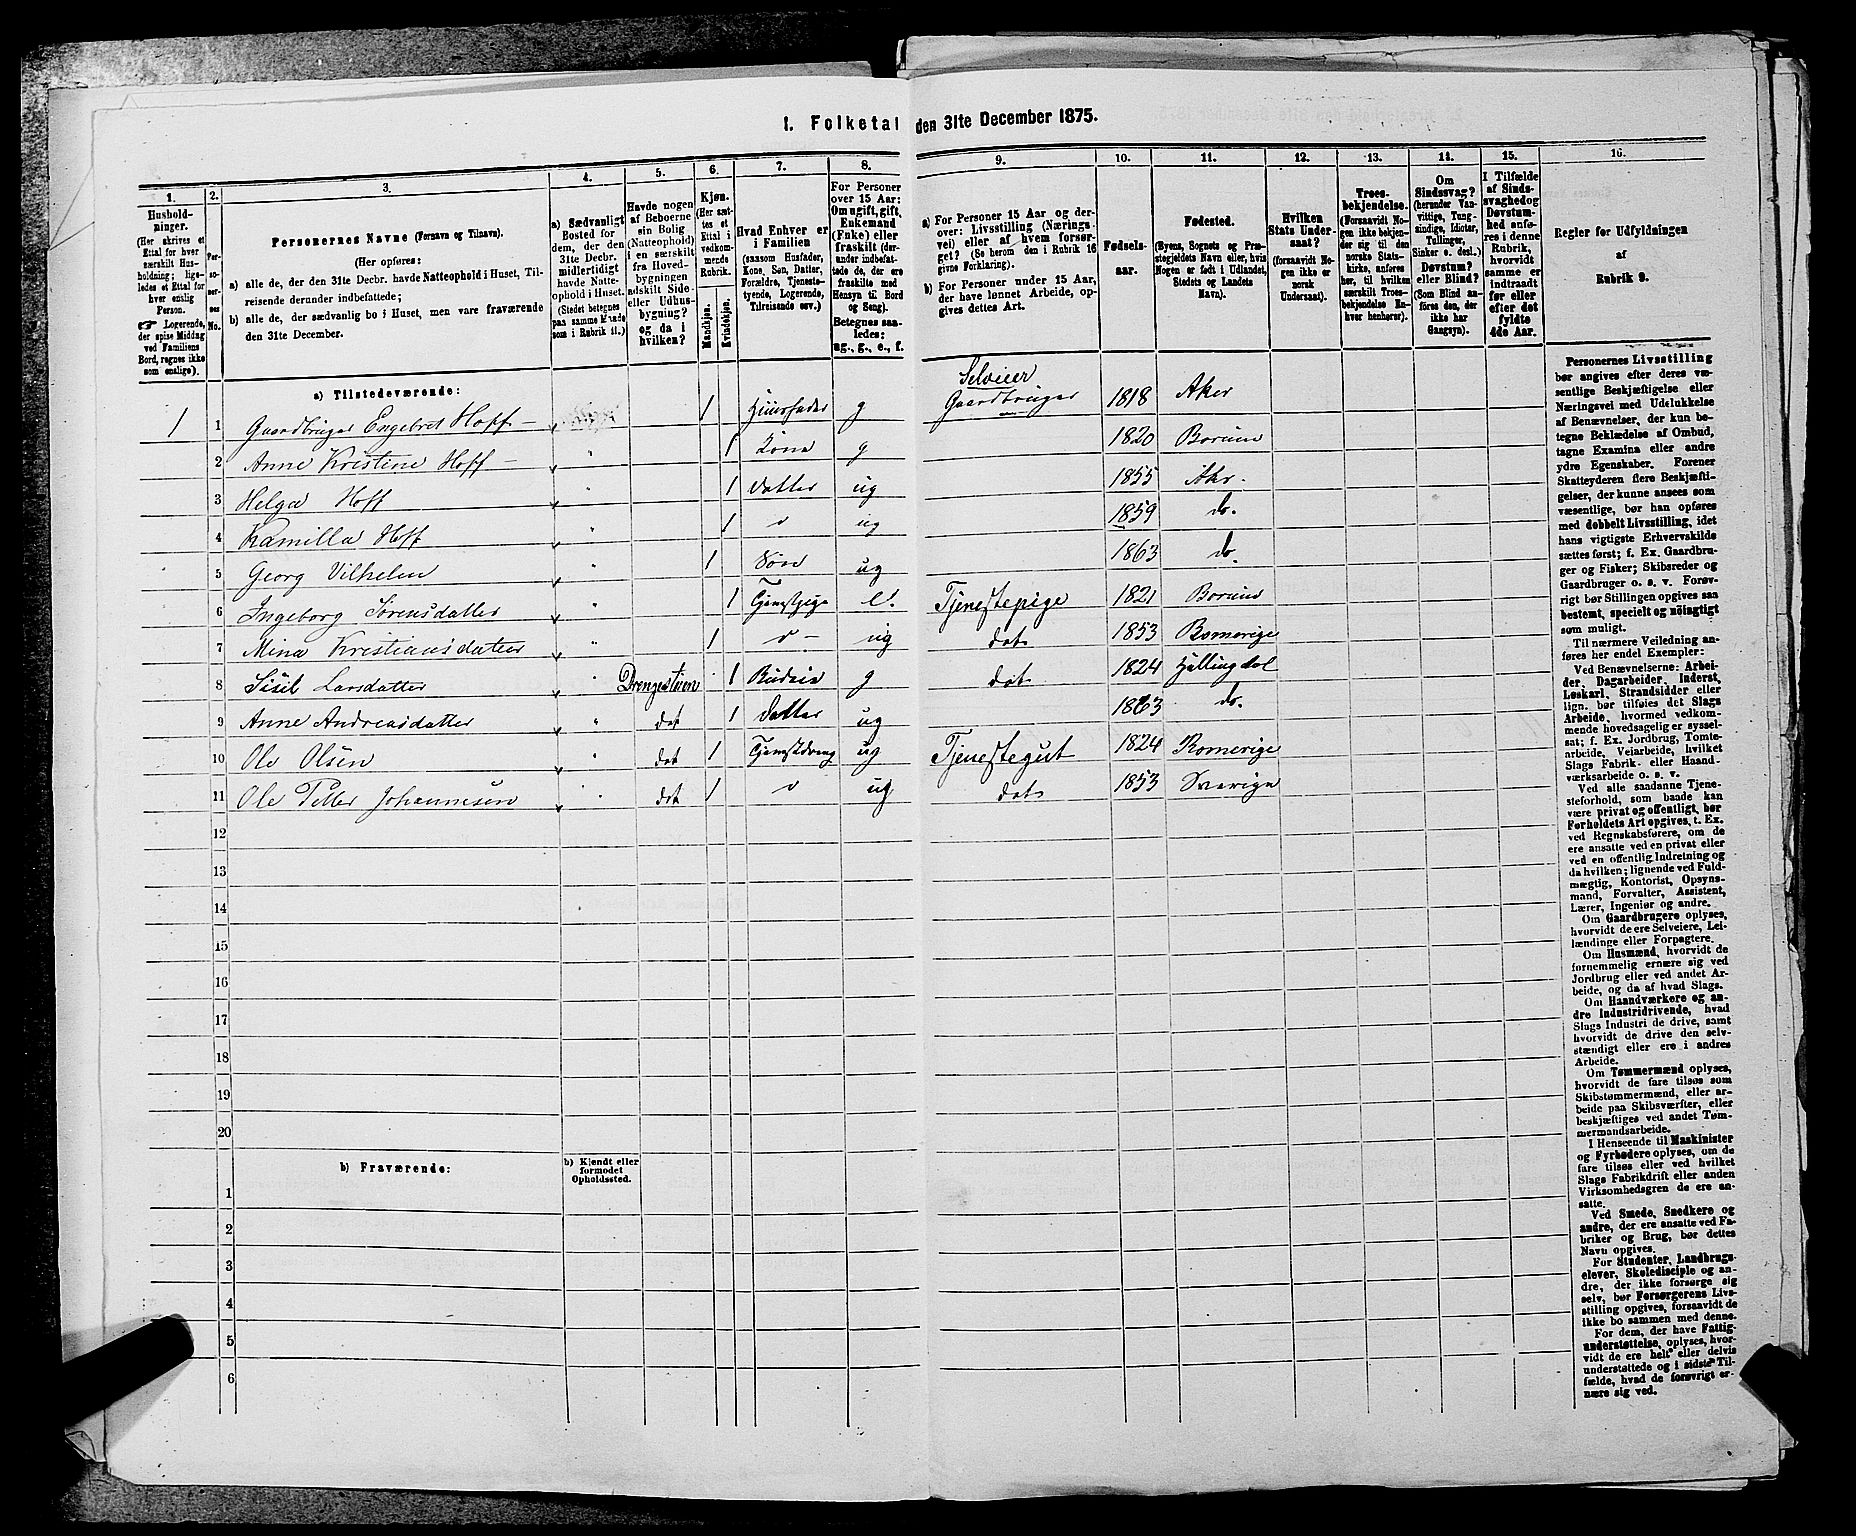 1. Folketal den 31te December 1875.
1.
Hushold-
ninger.
(Her skrives et
Ettal for hver
særskilt Hus-
holdning; lige-
ledes et Ettal for
hver enslig
Person.
☞ Logerende,
der spise Middag
ved Familiens
Bord, regnes ikke
som enslige).
2.
Per-
so-
ner-
nes
No.
3.
Personernes Navne (Fornavn og Tilnavn).
(Her opføres:
a) alle de, der den 31te Decbr. havde Natteophold i Huset, Til-
reisende derunder indbefattede;
b) alle de, der sædvanlig bo i Huset, men vare fraværende
den 31te December.
4.
a) Sædvanligt
Bosted for
dem, der den
31te Decbr.
midlertidigt
havde Natte-
ophold i Huset.
(Stedet betegnes
paa samme Maade
som i Rubrik 11.)
5.
Havde nogen
af Beboerne
sin Bolig
(Natteophold)
i en særskilt
fra Hoved-
bygningen
adskilt Side-
eller Udhus-
bygning?
og da i
hvilken?
6.
Kjøn.
(Her sæt-
tes et
Ettal i
vedkom-
mende
Rubrik.
Mandkjøn.
Kvindekjøn.
7.
Hvad Enhver er
i Familien
(saasom Husfader,
Kone, Søn, Datter,
Forældre, Tjeneste-
tyende, Logerende,
Tilreisende osv.)
8.
For Personer
over 15 Aar:
Om ugift, gift,
Enkemand
(Enke) eller
fraskilt (der-
under indbefat-
tede de, der ere
fraskilte med
Hensyn til Bord
og Seng).
Betegnes saa-
ledes:
ug., g., e., f.
9.
a) For Personer 15 Aar og der-
over: Livsstilling (Nærings-
vei) eller af hvem forsør-
get? (Se herom den i Rubrik 16
givne Forklaring).
b) For Personer under 15 Aar,
der have lønnet Arbeide, op-
gives dettes Art.
10.
Fødsels-
aar.
11.
Fødested.
(Byens, Sognets og Præ-
stegjeldets Navn eller, hvis
Nogen er født i Udlandet,
Stedets og Landets
Navn).
12.
Hvilken
Stats Under-
saat?
(forsaavidt No-
gen ikke er
norsk
Undersaat).
13.
Troes-
bekjendelse.
(Forsaavidt No-
gen ikke bekjen-
der sig til den
norske Stats-
kirke, anføres
her, til hvilken
særskilt Troes-
bekjendelse En-
hver henhører).
14.
Om
Sindssvag?
(herunder Van-
vittige, Tung-
sindige, Idioter,
Tullinger,
Sinker o. desl.)
Døvstum?
eller Blind?
(Som Blind an-
føres den, der
ikke har
Gangsyn).
15.
I Tilfælde
af Sinds-
svaghed og
Døvstum-
hed anfø-
res i denne
Rubrik,
hvorvidt
samme er
indtraadt
før eller
efter det
fyldte
4de Aar.
16.
Regler for Udfyldningen
af
Rubrik 9.
a) Tilstedeværende:
Selveier
1 1 Gaardbruger Engebret Hoff 1 Huusfader g Gaardbruger 1818 Aker
2 Anne Kristine Hoff " 1 Kone g 1820 Bærum
3 Helga Hoff " 1 datter ug 1855 Akr.
4 Kamilla Hoff " 1 " ug 1859 do.
5 Georg Vilhelm " 1 Søn ug 1863 do.
6 Ingeborg Sørensdatter " 1 Tjenstpige e. Tjenestepige 1821 Bærum
7 Mina Kristiansdatter " 1 " ug dot 1853 Romerige
8 Sisil Larsdatter " Drengestuen 1 Budeie g dot 1824 Hallingdal
9 Anne Andreasdatter " dot 1 datter ug 1863 do.
10 Ole Olsen " dot 1 Tjenstdreng ug Tjenestegut 1824 Romerige
11 Ole Petter Johannesen " dot 1 " ug dot 1853 Sverige
12
13
14
15
16
17
18
19
20
b) Fraværende:
b) Kjendt eller
formodet
Opholdssted.
1
2
3
4
5
6
Personernes Livsstilling
bør angives efter deres væ-
sentlige Beskjæftigelse eller
Næringsvei med Udelukkelse
af Benævnelser, der kun be-
tegne Beklædelse af Ombud,
tagne Examina eller andre
ydre Egenskaber. Forener
Skatteyderen flere Beskjæfti-
gelser, der kunne ansees som
væsentlige, bør han opføres
med dobbelt Livsstilling, idet
hans vigtigste Erhvervskilde
sættes først; f. Ex. Gaardbru-
ger og Fisker; Skibsreder og
Gaardbruger o. s. v. Forøv-
rigt bør Stillingen opgives saa
bestemt, specielt og nøiagtigt
som muligt.
Til nærmere Veiledning an-
føres her endel Exempler:
Ved Benævnelserne: Arbei-
der, Dagarbeider, Inderst,
Løskarl, Strandsidder eller
lign. bør tilføies det Slags
Arbeide, hvormed vedkom-
mende hovedsagelig er syssel-
sat; f. Ex. Jordbrug, Tomte-
arbeide, Veiarbeide, hvilket
Slags Fabrik- eller Haand-
værksarbeide o. s. v.
Ved alle saadanne Tjene-
steforhold, som baade kan
være privat og offentligt, bør
Forholdets Art opgives, t. Ex.
ved Regnskabsførere, om de
ere ansatte ved en privat eller
ved en offentlig Indretning og
da hvilken; lignende ved Fuld-
mægtig, Kontorist, Opsyns-
mand, Forvalter, Assistent,
Lærer, Ingeniør og andre.
Om Gaardbrugere oplyses,
hvorvidt de ere Selveiere, Lei-
lændinge eller Forpagtere.
Om Husmænd, hvorvidt de
fornemmelig ernære sig ved
Jordbrug eller ved andet Ar-
beide, og da af hvad Slags.
Om Haandværkere og an-
dre Industridrivende, hvad
Slags Industri de drive, samt
hvorvidt de drive den selv-
stændigt eller ere i andres
Arbeide.
Om Tømmermænd oplyses,
hvorvidt de fare tilsøs som
Skibstømmermænd, eller ar-
beide paa Skibsværfter, eller
beskjæftiges ved andet Tøm-
mermandsarbeide.
I Henseende til Maskinister
og Fyrbødere oplyses, om de
fare tilsøs eller ved hvilket
Slags Fabrikdrift eller anden
Virksomhedsgren de ere an-
satte.
Ved Smede, Snedkere og
andre, der ere ansatte ved Fa-
briker og Brug, bør dettes
Navn opgives.
For Studenter, Landbrugs-
elever, Skoledisciple og an-
dre, der ikke forsørge sig
selv, bør Forsørgerens Livs-
stilling opgives, forsaavidt de
ikke bo sammen med denne.
For dem, der have Fattig-
understøttelse, oplyses, hvor-
vidt de ere helt eller delvis
understøttede og i sidste Til-
fælde, hvad de forøvrigt er-
nære sig ved.